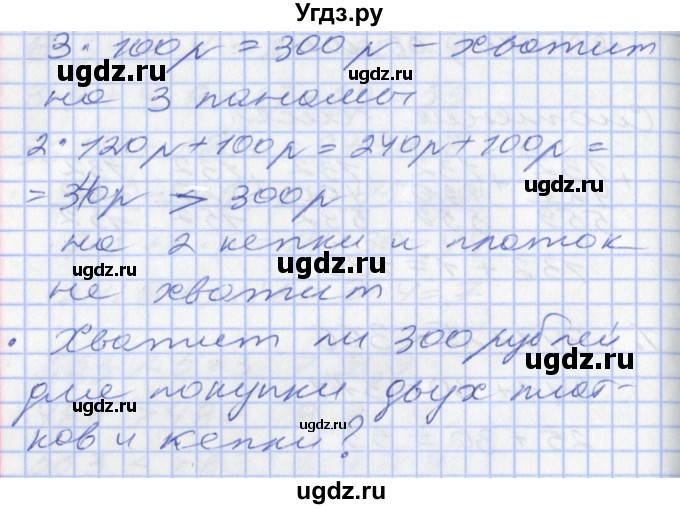 Угдз.ру
3 · 100р = 300р – хватит
на 3 панамы
2 · 120р + 100р = 240р + 100р =
= 340р > 300р
на 2 кепки и платок
не хватит
• Хватит ли 300 рублей
для покупки двух плат-
ков и кепки?
ugdz.ru
ugdz.ru
ugdz.ru
ugdz.ru
ugdz.ru
ugdz.ru
ugdz.ru
ugdz.ru
ugdz.ru
ugdz.ru
ugdz.ru
ugdz.ru